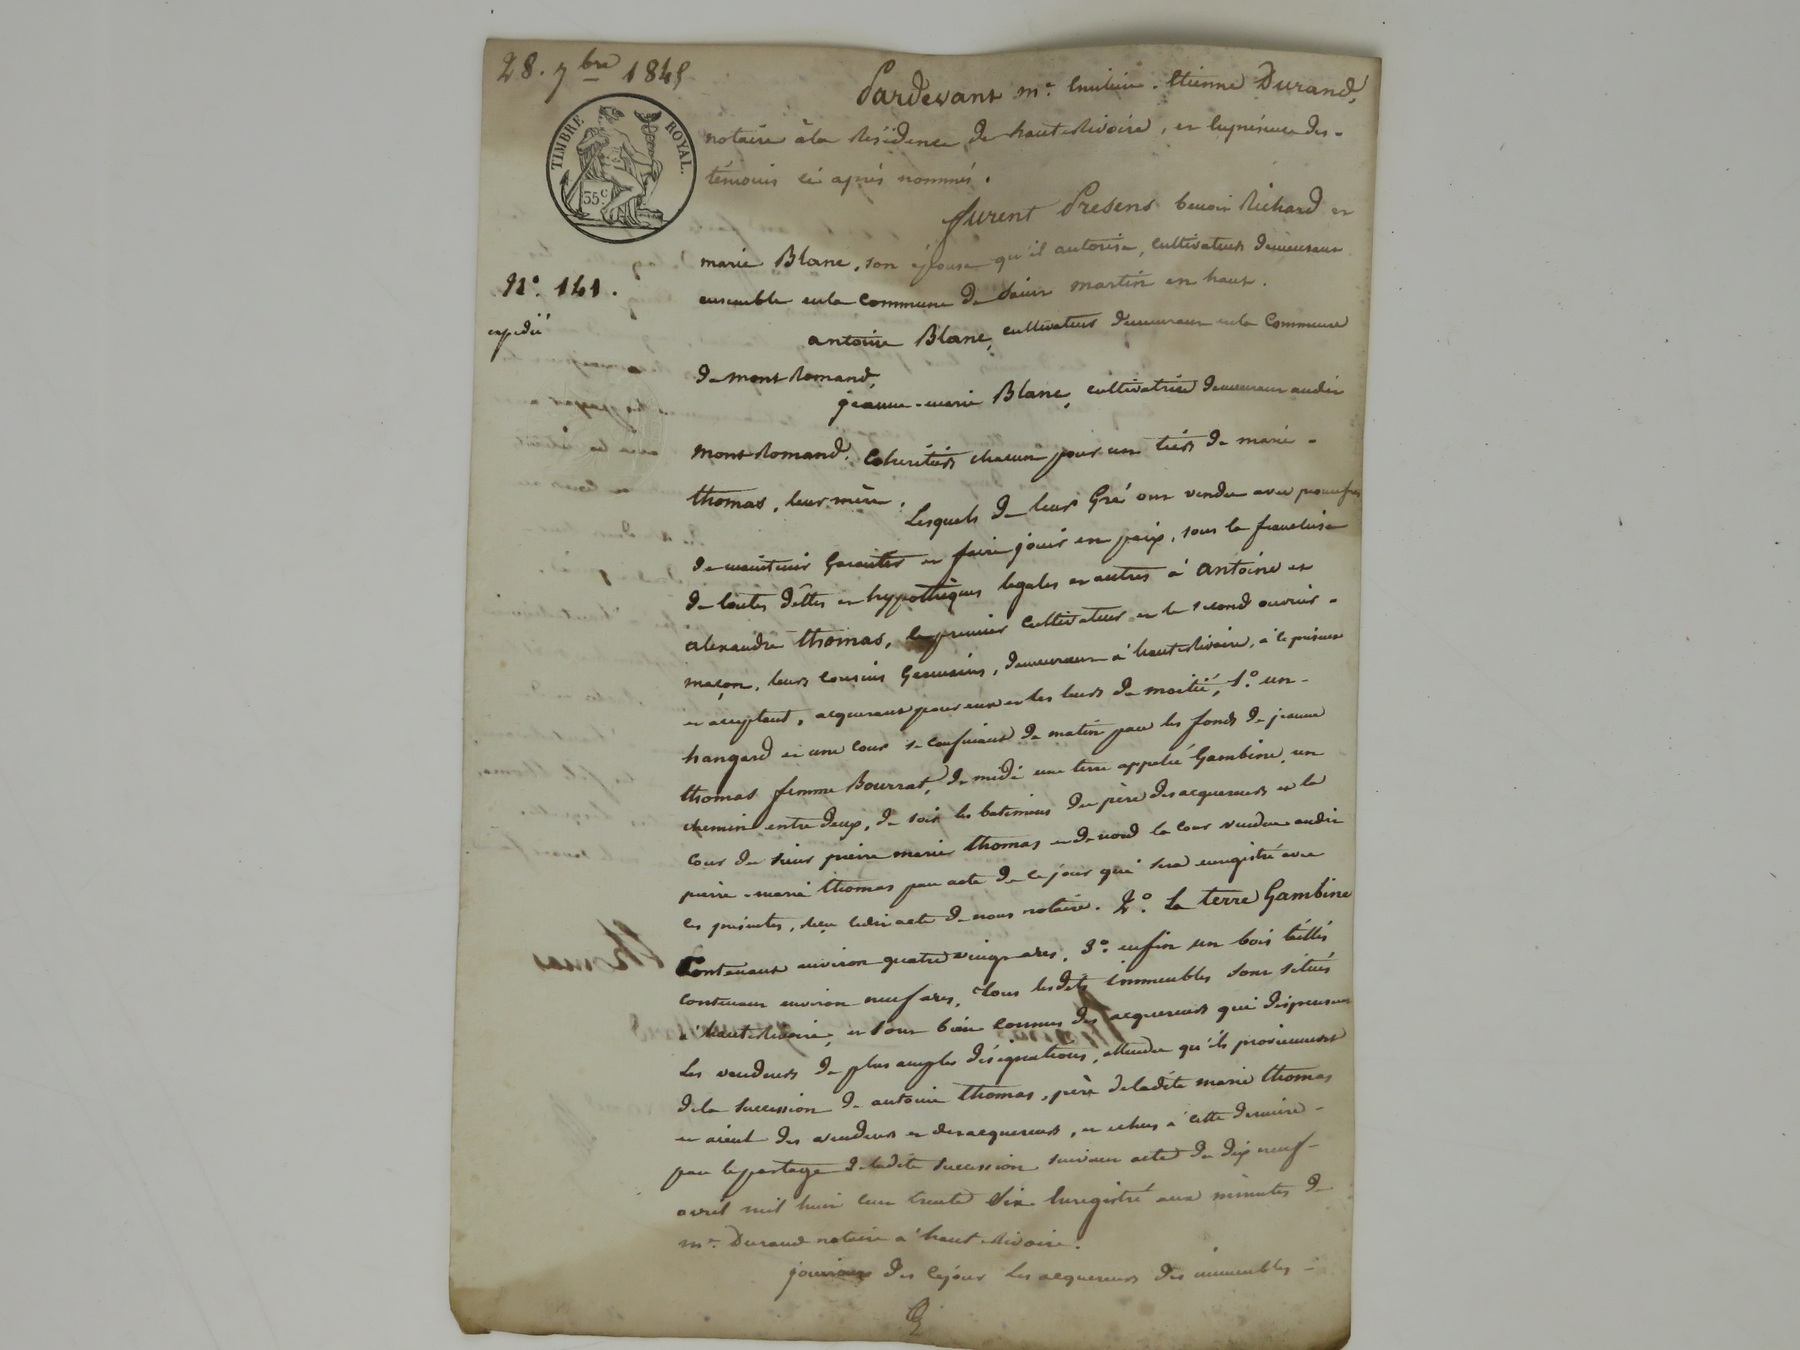 28. 7bre 1845
TIMBRE ROYAL.
35c
N°. 141.
expédié
Pardevant me. Etienne Durand,
notaire à la Résidence de haute Rivoire, en la présence des
témoins ci après nommés.
furent Présens benoit Richard et
marie Blanc, son épouse qu'il autorise, cultivateurs demeurant
ensemble en la commune de Saint martin en haut.
antoine Blanc, cultivateur demeurant en la Commune
de mont Romand,
jeanne-marie Blanc, cultivatrice demeurant audit
mont Romand. Cohéritiers chacun pour un tiers de marie
thomas, leur mère.
Lesquels de leur Gré ont vendu avec promesse
de maintenir Garantir et faire jouir en paix, sous la franchise
de toutes dettes et hypothèques legales et autres à antoine et
alexandre thomas, le premier cultivateur et le second ouvrier
maçon, leurs cousins Germains, demeurant à haute Rivoire, à ce présens
et acceptant, acquerant pour eux et les leurs de moitié, 1.° un
hangard et une cour se confinant de matin par les fonds de jeanne
thomas femme Bourrat, de midi une terre appelée Gambine, un
chemin entre deux, de soir les batimens du père des acquereurs et la
cour du sieur pierre marie thomas et de nord la cour vendue audit
pierre-marie thomas par acte de ce jour qui sera enregistré avec
ces présentes, reçu ledit acte de nous notaire. 2°. La terre Gambine
Contenant environ quatre vingt ares. 3°. enfin un bois taillis
contenant environ neuf ares. Tous lesdits immeubles sont situés
à haute Rivoire, et sont bien connus des acquereurs qui dispensent
Les vendeurs de plus amples désignations, attendu qu'ils proviennent
de la succession de antoine thomas, père de ladite marie thomas
et aieul des vendeurs et des acquereurs, et echus à cette derniere
par le partage de ladite succession suivant acte du dix neuf
avril mil huit cent trente Six Enregistré aux minutes de
me. Durand notaire à haute Rivoire.
jouiront des cejour Les acquereurs des immeubles